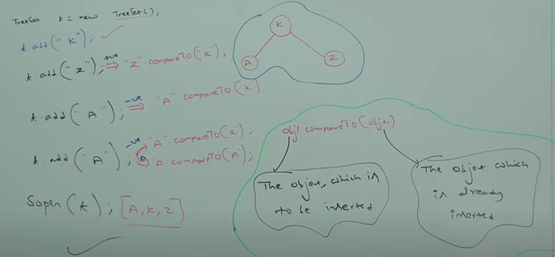 TreeSet t = new TreeSet();
t.add("K"); ✓
t.add("Z"); +ve ⇒ "Z".compareTo("K");
t.add("A"); -ve ⇒ "A".compareTo(K)
t.add("A"); -ve ⇒ "A".compareTo(K);
0 ⇒ A.compareTo(A);
Sopln(t); [A, K, Z]
K
A
Z
obj1.compareTo(obj2)
The object, which is
to be inserted
The object which
is already
inserted